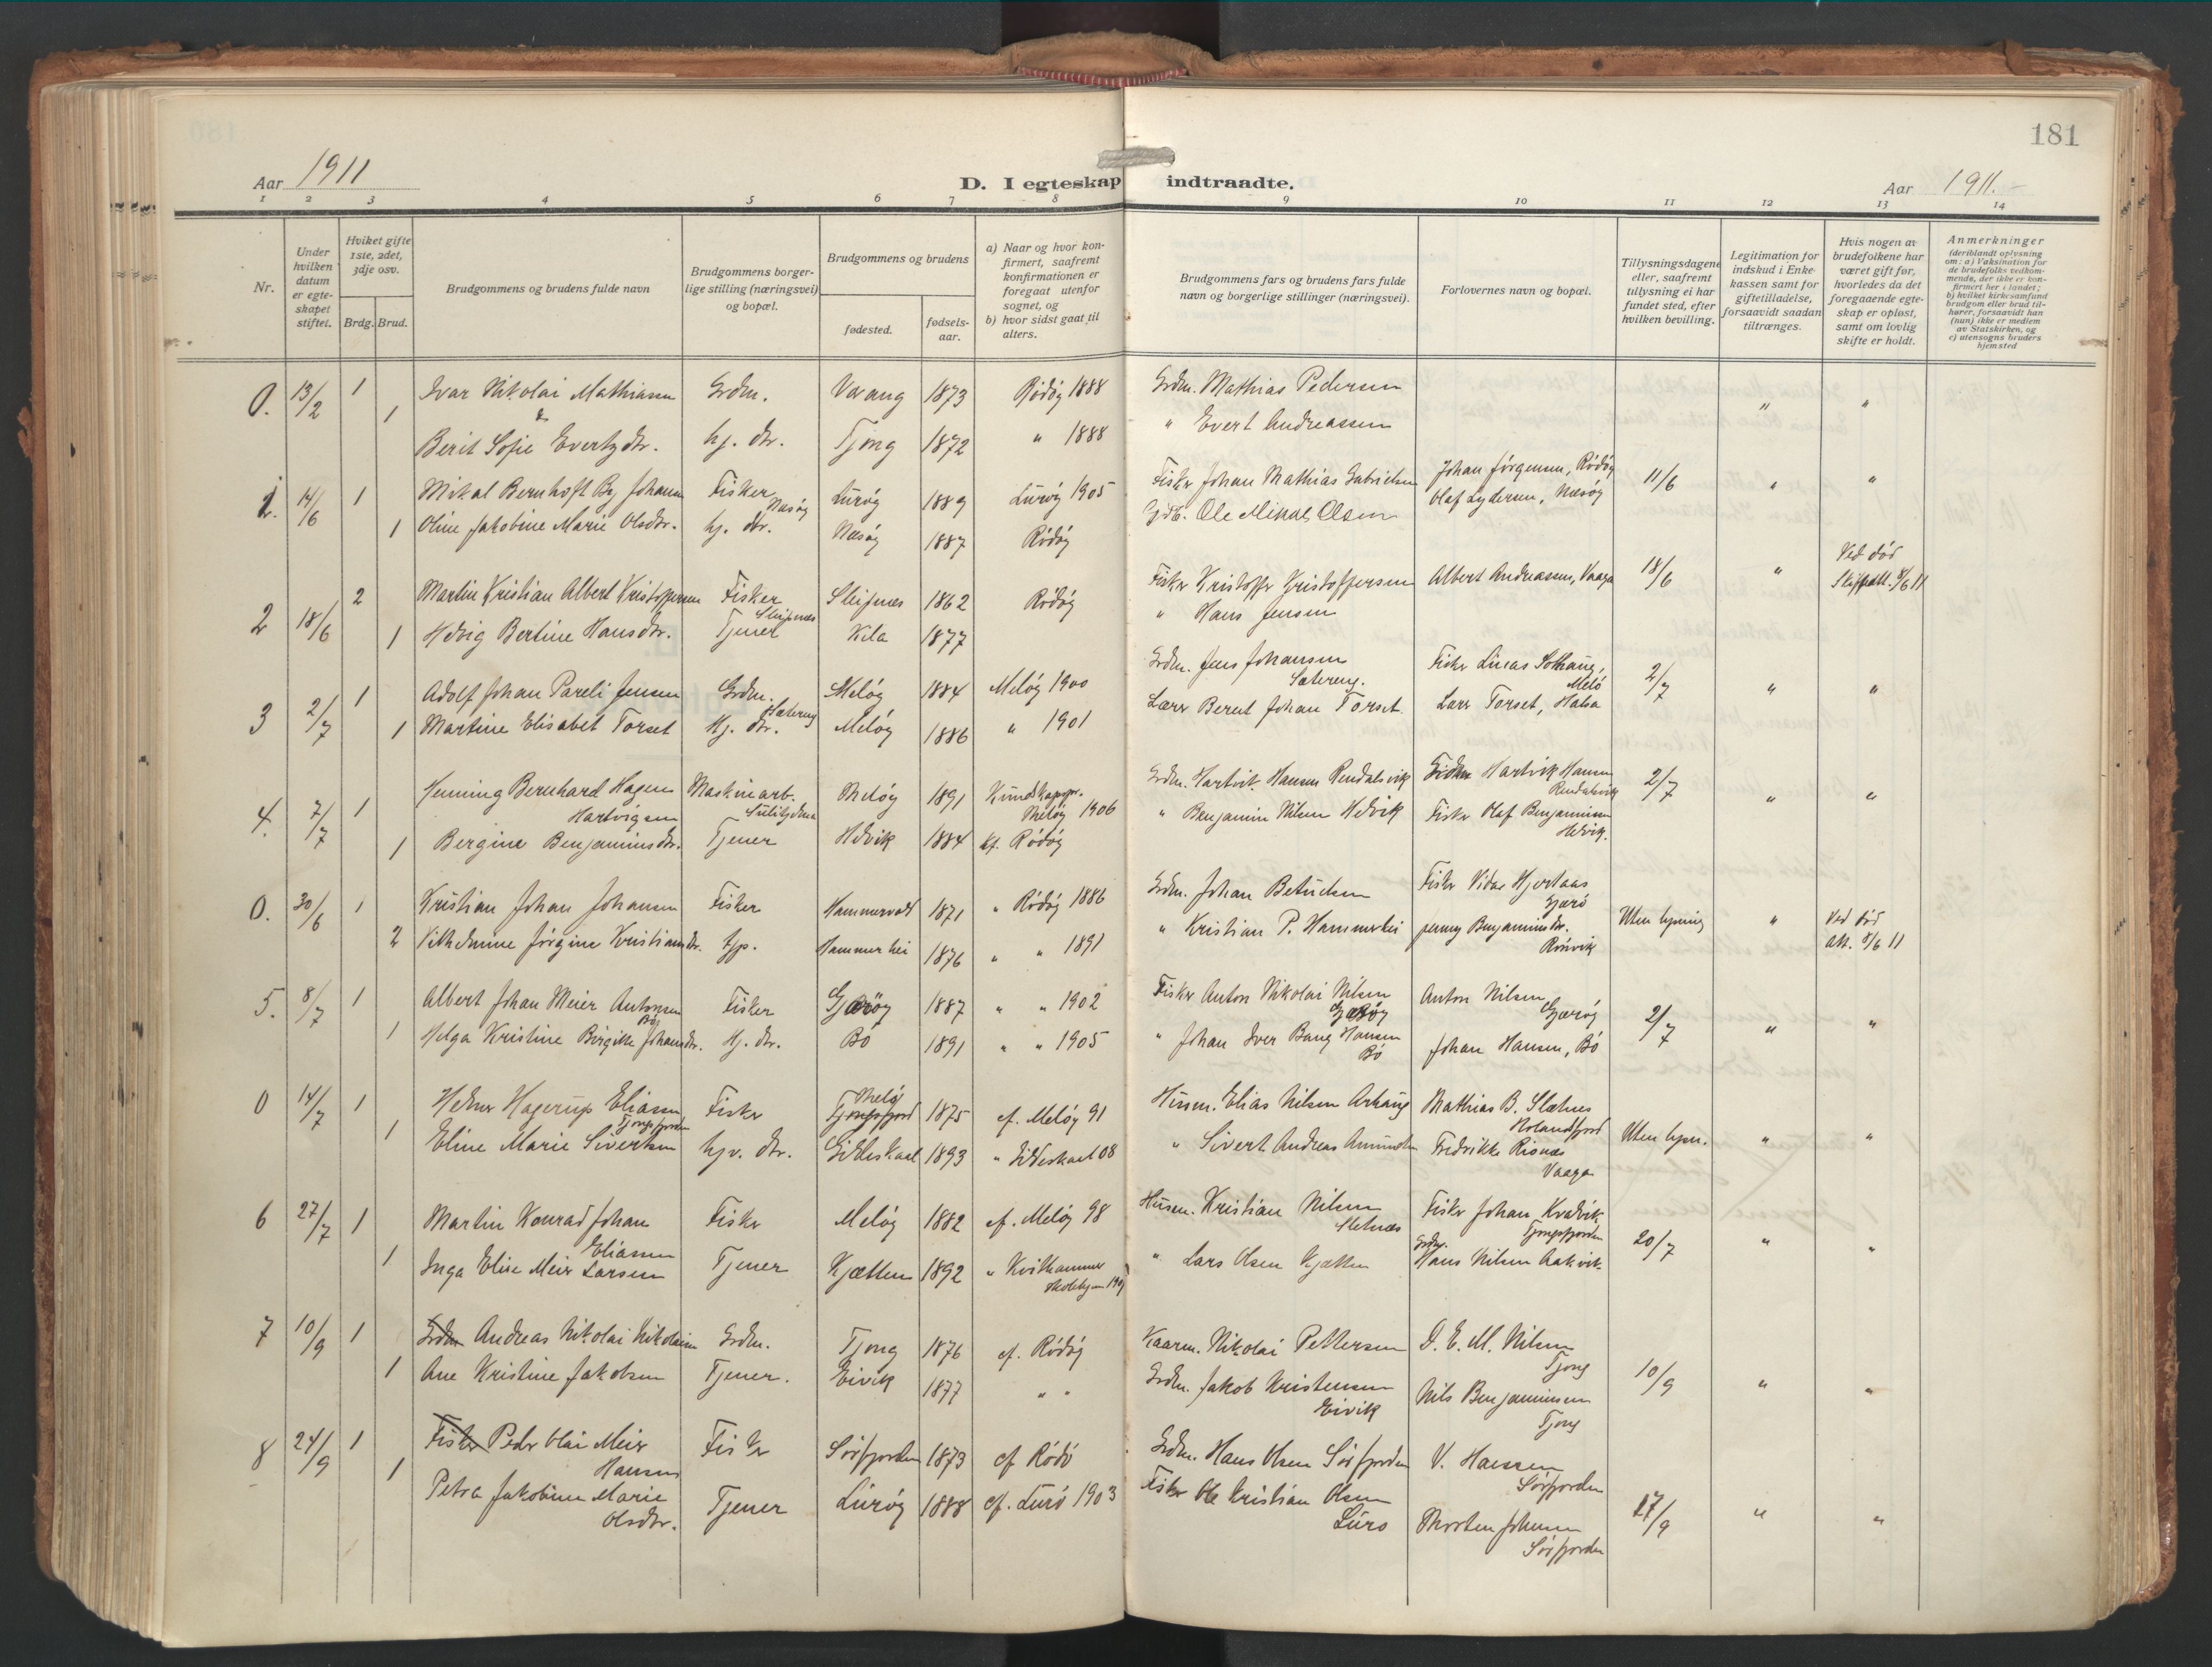 181
Aar 1911
D. I egteskap indtraadte.
Aar 1911.
1 2 3 4 5 6 7 8 9 10 11 12 13 14
Nr.
Under hvilken datum er egte-skapet stiftet.
Hvilket gifte 1ste, 2det, 3dje osv.
Brdg. Brud.
Brudgommens og brudens fulde navn
Brudgommens borger-lige stilling (næringsvei) og bopæl.
Brudgommens og brudens
fødested.
fødsels-aar.
a) Naar og hvor kon-firmert, saafremt konfirmationen er foregaat utenfor sognet, og
b) hvor sidst gaat til alters.
Brudgommens fars og brudens fars fulde navn og borgerlige stillinger (næringsvei).
Forlovernes navn og bopæl.
Tillysningsdagene eller, saafremt tillysning ei har fundet sted, efter hvilken bevilling.
Legitimation for indskud i Enke-kassen samt for giftetilladelse, forsaavidt saadan tiltrænges.
Hvis nogen av brudefolkene har været gift før, hvorledes da det foregaaende egte-skap er opløst, samt om lovlig skifte er holdt.
Anmerkninger (deriblandt oplysning om: a) Vaksination for de brudefolks vedkom-mende, der ikke er kon-firmert her i landet; b) hvilket kirkesamfund brudgom eller brud til-hører, forsaavidt han (hun) ikke er medlem av Statskirken, og c) utensogns bruders hjemsted
0. 13/2 1 Ivar Nikolai Mathiasen Grdm. Varang 1873 Rödöy 1888 Grdm. Mathias Pedersen " "
&
1 Berit Sofie Evertsdtr. hj. dtr. Tjong 1872 " 1888 " Evert Andreassen
1. 14/6 1 Mikal Bernhoft By Johansen Fisker Næsöy Luröy 1889 Luröy 1905 Fisker Johan Mathias Gabrielsen Johan Jörgensen, Rödöy 11/6 " "
1 Oline Jakobine Marie Olsdtr. hj. dtr. Næsöy 1887 Rödöy Gdb. Ole Mikal Olsen Olaf Lydersen, Næsöy
2 18/6 2 Martin Kristian Albert Kristoffersen Fisker Sleipnes Sleipnes 1862 Rödöy Fisker Kristoffer Kristoffersen Albert Andreassen, Vaaga 18/6 " Ved död
Skifteatt. 9/6 11
1 Hedvig Bertine Hansdtr. Tjener Kila 1877 " Hans Jensen
3 2/7 1 Adolf Johan Pareli Jensen Grdm. Sætereng Melöy 1884 Melöy 1900 Grdm. Jens Johansen Sætereng. Fisker Lucas Solhaug, Melö 2/7 " "
1 Martine Elisabet Torset Hj. dtr. Melöy 1886 " 1901 Lærer Berent Johan Torset Lærer Torset, Halsa
4. 7/7 1 Henning Bernhard Hagen Hartvigsen Maskinarb. Sulitjelma Melöy 1891 Melöy 1906 Grdm. Hartvik Hansen Rendalsvik Fisker Hartvik Hansen Rendalsvik 2/7 " "
1 Bergine Benjaminsdtr. Tjener Hdvik 1884 kf. Rödöy " Benjamin Nilsen Hdvik Fisker Olaf Benjaminsen Hdvik.
0. 30/6 1 Kristian Johan Johansen Fisker Hammervold 1871 " Rödöy 1886 Grdm. Johan Betuelsen Fisker Vidar Hjertaas Gjærö Uten lysning " Ved död
Att. 8/6 11
2 Vilhelmine Jörgine Kristiansdtr. Hammerhei 1876 " " 1891 " Kristian P. Hammerhei Jenny Benjaminsdtr. Rönvik
5. 8/7 1 Albert Johan Meier Antonsen Fisker Gjæröy 1887 " " 1902 Fisker Anton Nikolai Nilsen Gjæröy Anton Nilsen, Gjæröy 2/7 " "
1 Helga Kristine Birgitte Johansdtr. Hj. dtr. Bö 1891 " " 1905 " Johan Iver Bang Hansen Bö Johan Hansen, Bö
0 14/7 1 Helmer Hagerup Eliasen Tjongsfjorden Fisker Melöy Tjongsfjord 1875 cf. Melöy 91 Husm. Elias Nilsen Arhaug Mathias B. Slætnes Holandsfjord Uten lysn. " "
1 Eline Marie Sivertsen hjv. dtr. Gildeskaal 1893 " Gildeskaal 08 " Sivert Andreas Amundsen Fredrikke Risnæs Vaaga
6 27/7 1 Martin Konrad Johan Eliasen Fisker Melöy 1882 cf. Melöy 98 Husm. Kristian Nilsen Sletnæs Fisker Johan Kvalvik Tjongsfjorden 20/7 " "
1 Inga Elise Meier Larsen Tjener Kjætten 1892 " Kvithammer Skolehjem " Lars Olsen Kjætten Grdm. Hans Nilsen Aakvik
7 10/9 1 Grdm Andreas Nikolai Nikolaisen Grdm. Tjong 1876 cf. Rödöy Kaarm. Nikolai Pettersen D. E. M. Nilsen Tjong 10/9 " "
1 Ane Kristine Jakobsen Tjener. Eivik 1877 " " Grdm. Jakob Kristensen Eivik Nils Benjaminsen Tjong
8 24/9 1 Fisker Peder Olai Meier Hansen Fisker Sörfjorden 1873 cf Rödö Grdm. Hans Olsen Sörfjorden V. Hanssen Sörfjorden 17/9 " "
1 Petra Jakobine Marie Olsdtr. Tjener Luröy 1888 cf. Lurö 1903 Fisker Ole Kristian Olsen Lurö Morten Johnsen Sörfjorden